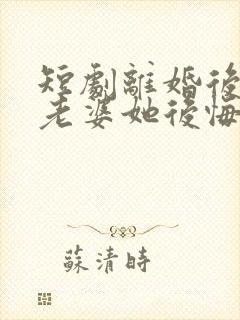 短劇離婚後
老婆她後悔
蘇清時